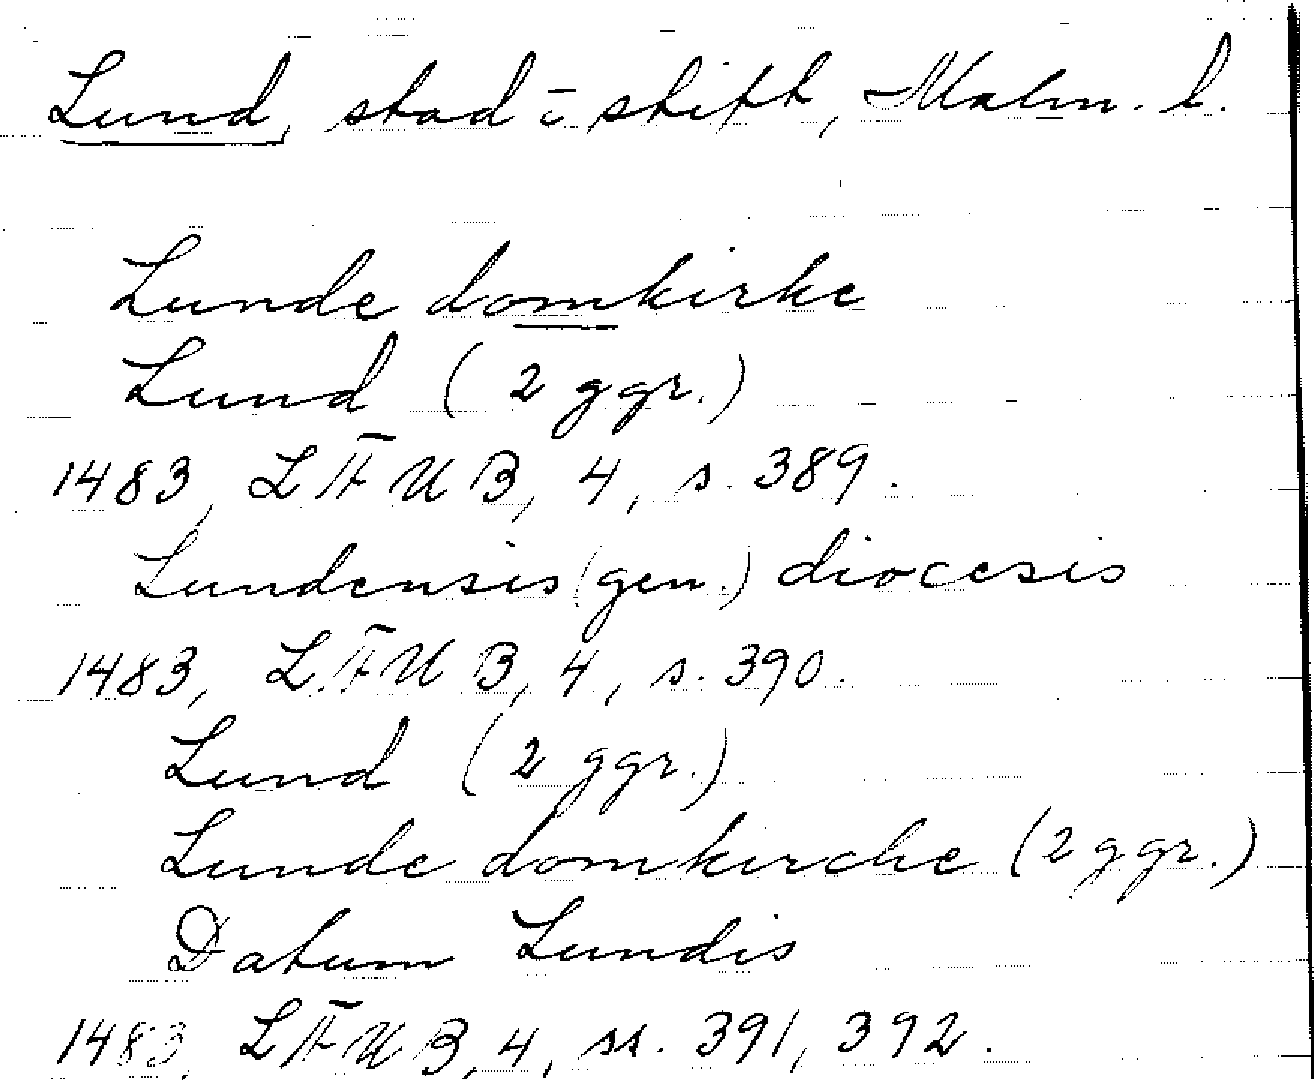 Lund, stad o stift, Malm. l.
Lunde domkirke
Lund (2 ggr.)
1483, LÄUB, 4, s. 389.
Lundensis (gen.) diocesis
1483, LÄUB, 4, s. 390.
Lund (2 ggr.)
Lunde domkirche (2 ggr.)
Datum Lundis
1483, LÄUB, 4, ss. 391, 392.